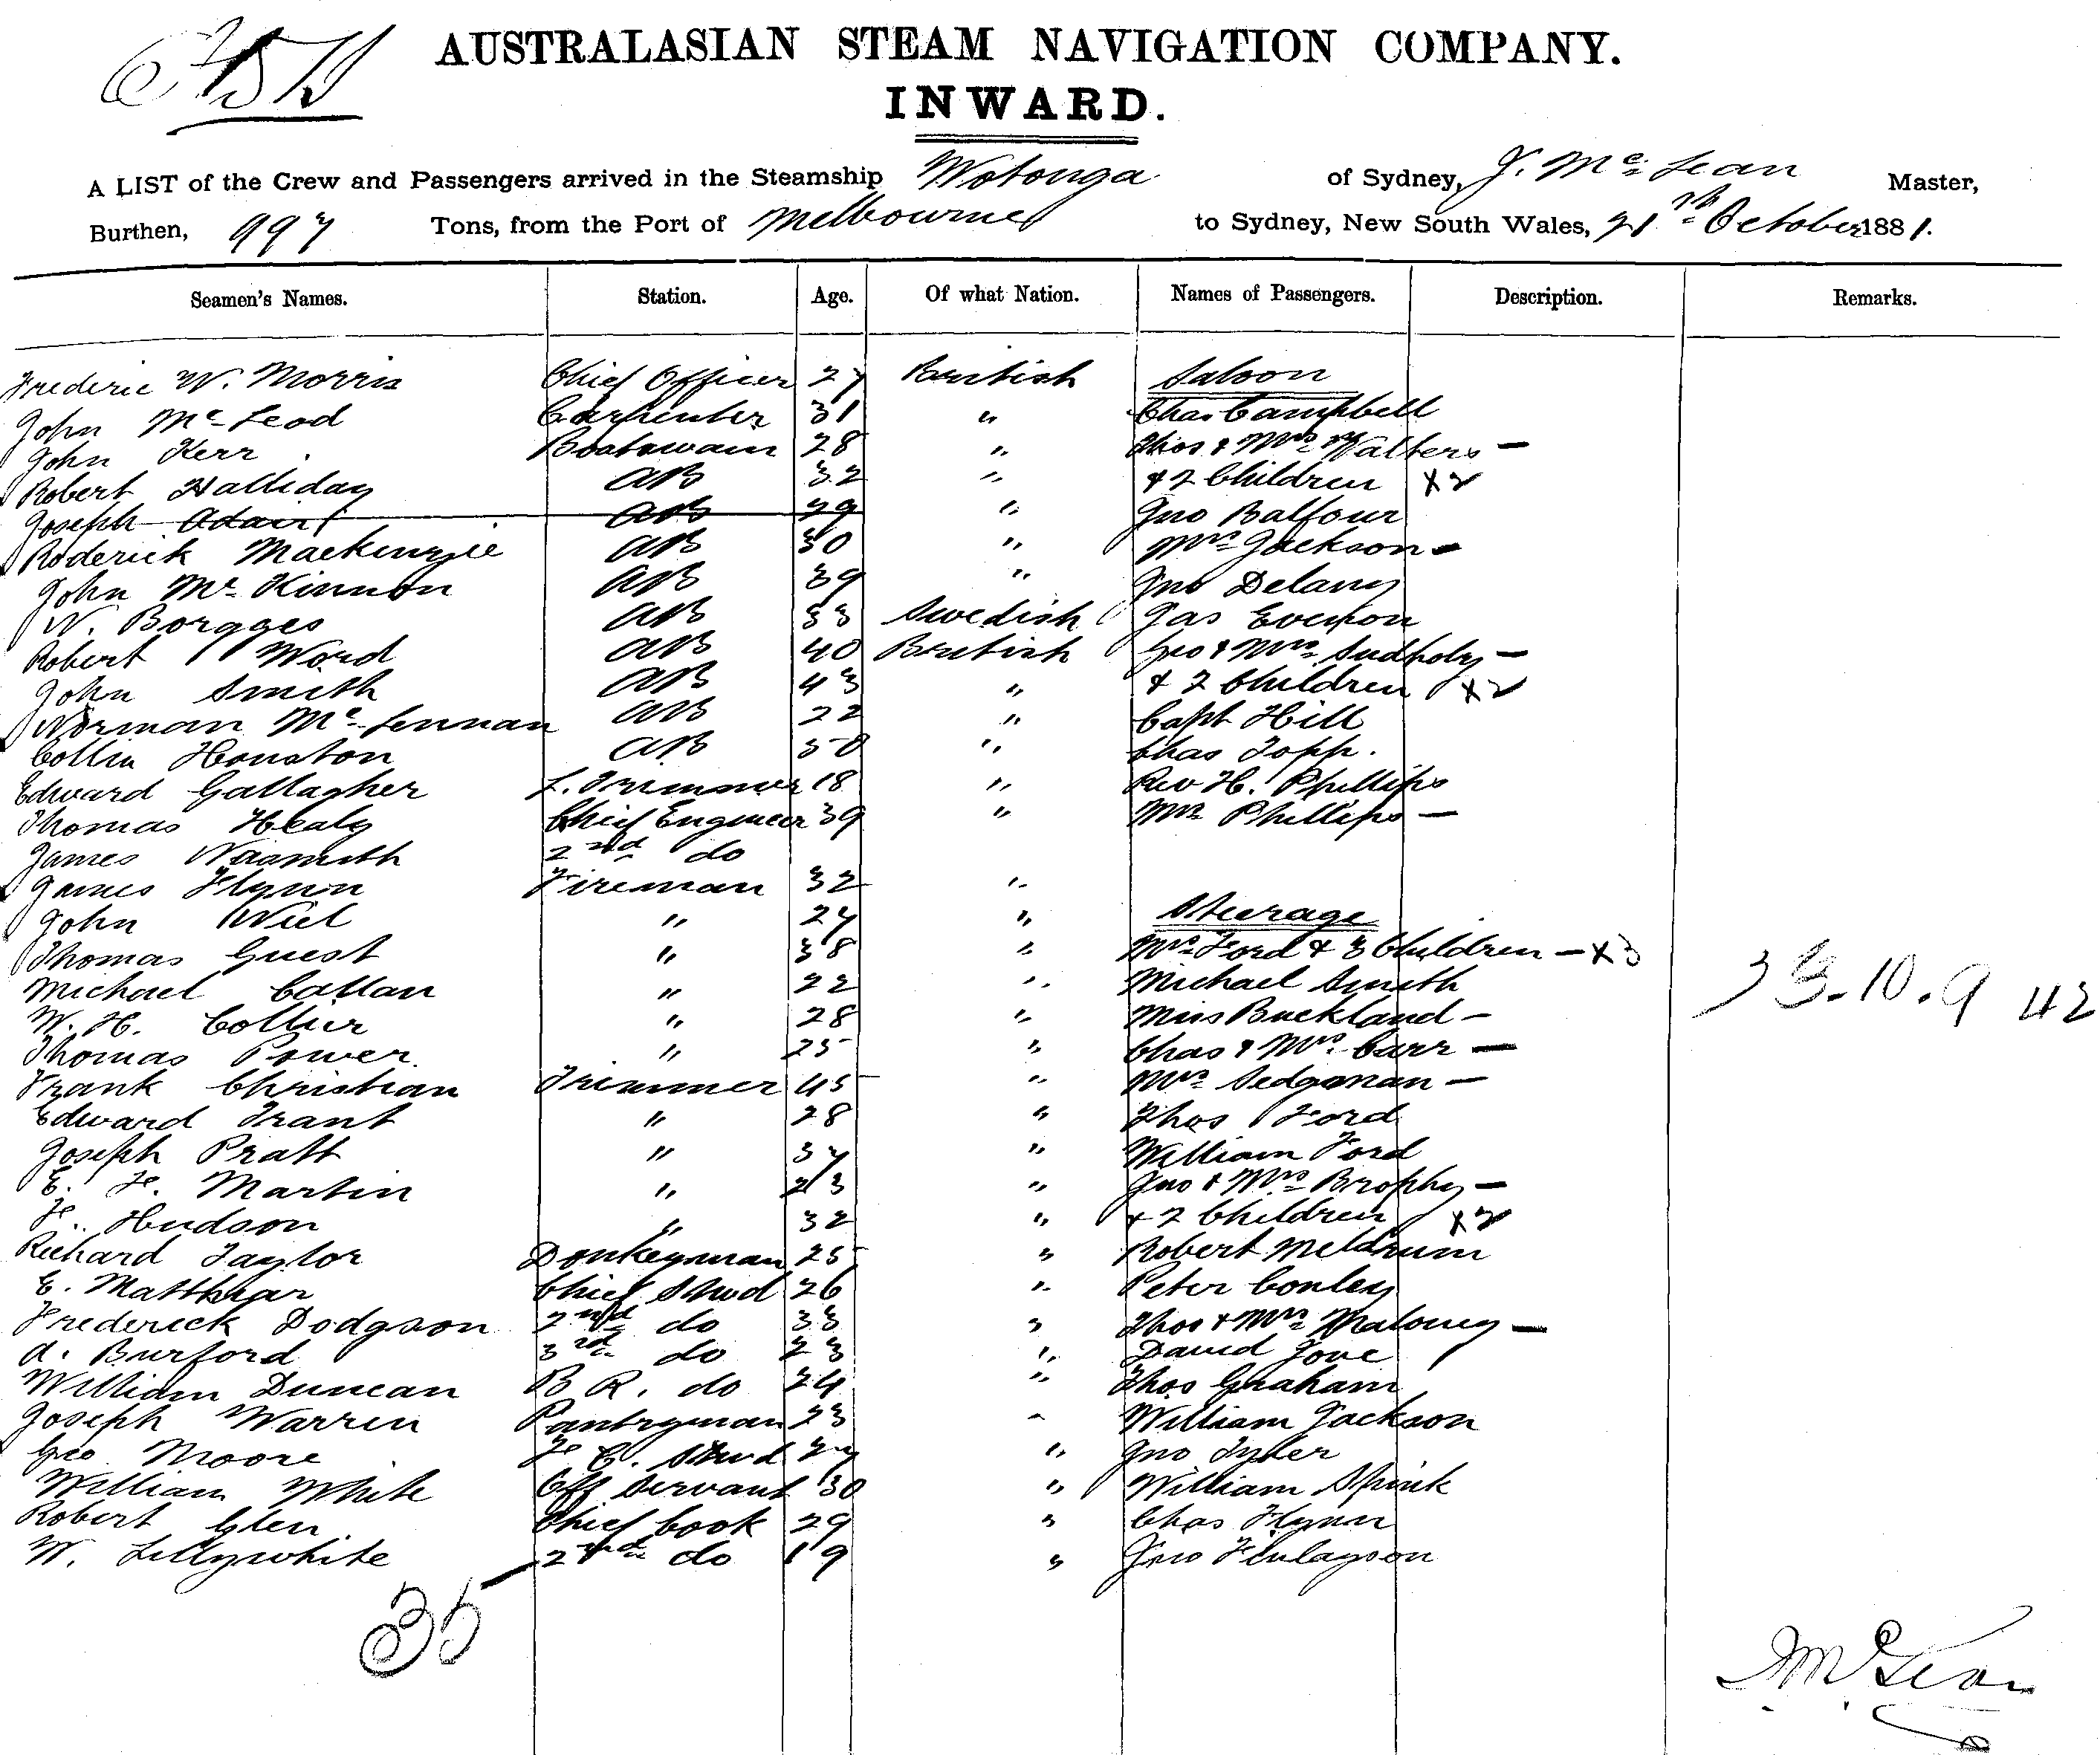 AUSTRALASIAN STEAM NAVIGATION COMPANY.
INWARD.
A LIST of the Crew and Passengers arrived in the Steamship Wotonga of Sydney, J. McLean Master,
Burthen, 997 Tons, from the Port of Melbourne to Sydney, New South Wales, 21st October 1881.
Seamen's Names. Station. Age. Of what Nation. Names of Passengers. Description. Remarks.
Frederic W. Morris Chief Officer 27 British Saloon
John McLeod Carpenter 31 " Chas Campbell
John Kerr Boatswain 28 " Thos & Mrs Walters —
Robert Halliday AB 32 " & 2 Children x2
Joseph Adair AB 29 " Jno Balfour
Roderick Mackenzie AB 30 " Mrs Jackson —
John McKinnon AB 39 " Jno Delany
W. Borgges AB 33 Swedish Jas Everson
Robert Word AB 40 British Geo & Mrs —
John Smith AB 43 " & 2 Children x2
Norman McLennan AB 22 " Capt Hill
Collin Houston AB 50 " Chas Topp.
Edward Gallagher L. Trimmer 18 " Rev H. Phillips
Thomas Healy Chief Engineer 39 " Mrs Phillips —
James Wasmith 2nd do
James Flynn Fireman 32 "
John Wiel " 27 " Steerage
Thomas Guest " 38 " Mrs Ford & 3 Children — x3
Michael Callan " 22 " Michael Smith
33.10.9 42
W. H. Collier " 28 " Miss Buckland —
Thomas Power " 25 " Chas & Mrs Carr —
Frank Christian Trimmer 45 " Mrs Sedgman —
Edward Trant " 28 " Thos Ford
Joseph Pratt " 37 " William Ford
E. F. Martin " 23 " Jno & Mrs Brophy —
F. Hudson " 32 " & 2 Children x2
Richard Taylor Donkeyman 25 " Robert Meldrum
E. Matthiar Chief Stwd 26 " Peter Conley
Frederick Dodgson 2nd do 33 " Thos & Mrs Maloney —
A. Burford 3rd do 23 " David Jove
William Duncan B R. do 24 " Thos Graham
Joseph Warren Pantryman 23 " William Jackson
Geo Moore F. C. Stwd 27 " Jno Tyler
William White Off Servant 30 " William Spink
Robert Glen Chief Cook 29 " Chas Flynn
W. Lillywhite 2nd do 19 " Jno Finlayson
35
J McLean